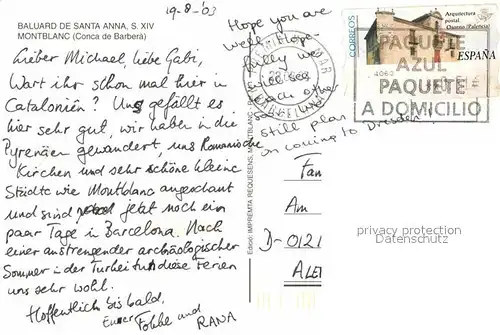 BALUARD DE SANTA ANNA, S. XIV
MONTBLANC (Conca de Barberà)
19-8-'03
Lieber Michael, liebe Gabi,
Wart ihr schon mal hier in
Catalonïen? Uns gefällt es
hier sehr gut, wir haben in die
Pyrenäen gewandert, uns Romanische
Kirchen und sehr schöne kleine
Städte wie Montblanc angeschaut
und sind jetzt noch ein
paar Tage in Barcelona. Nach
einer anstrengender archäologischer
Sommer in der Turkei tun diese Ferien
uns sehr wohl.
Hoffentlich bis bald,
Euer Fokke and
RANA
Hope you are
well. Hope-
fully we
see
each other
still plan
on coming to Dresden
Edicio: IMPREMTA REQUESENS, MONTBLANC
CORREOS
Arquitectura
postal.
Osorno (Palencia)
ESPAÑA
PAQUETE
AZUL
PAQUETE
A DOMICILIO
Fam
Am
D-0121
ALE
privacy protection
Datenschutz